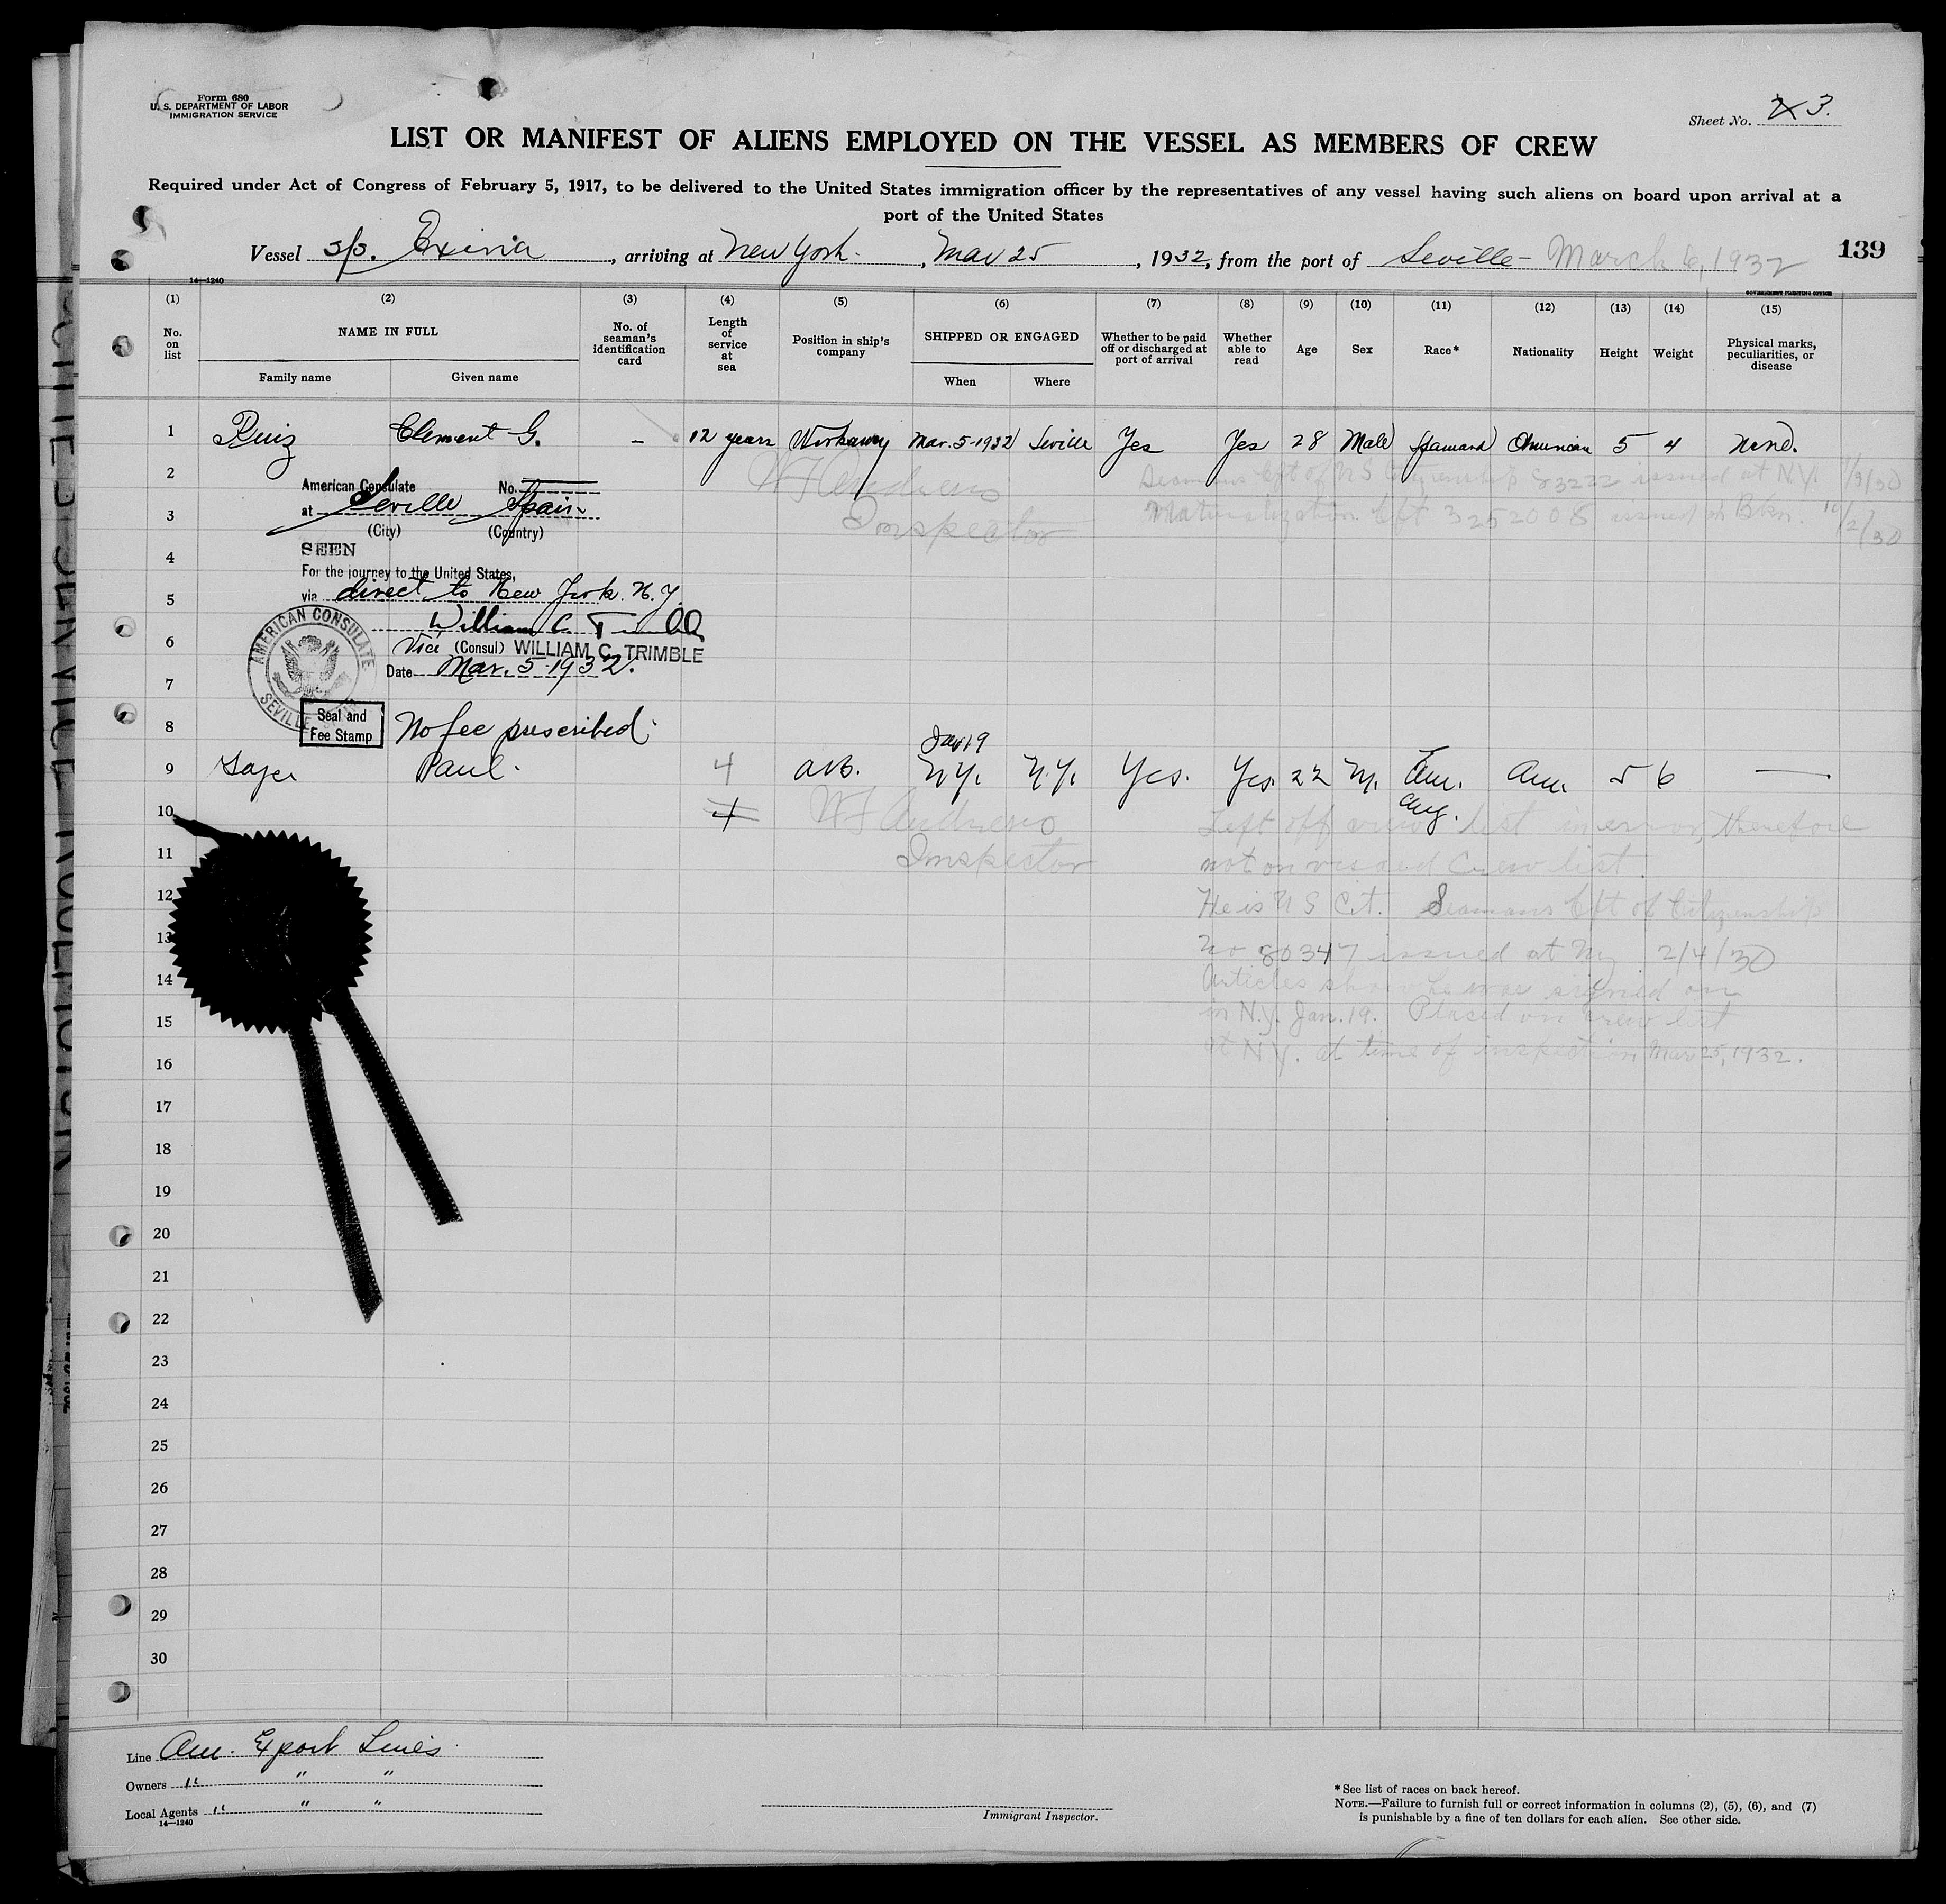 Form 680
U. S. DEPARTMENT OF LABOR
IMMIGRATION SERVICE
Sheet No. 2 3.
LIST OR MANIFEST OF ALIENS EMPLOYED ON THE VESSEL AS MEMBERS OF CREW
Required under Act of Congress of February 5, 1917, to be delivered to the United States immigration officer by the representatives of any vessel having such aliens on board upon arrival at a
port of the United States
Vessel , arriving at New York. , Mar 25 , 1932, from the port of Seville - March 6, 1932
139
14—1240
GOVERNMENT PRINTING OFFICE
(1) (2) (3) (4) (5) (6) (7) (8) (9) (10) (11) (12) (13) (14) (15)
No. on list
NAME IN FULL
Family name Given name
No. of seaman's identification card
Length of service at sea
Position in ship's company
SHIPPED OR ENGAGED
When Where
Whether to be paid off or discharged at port of arrival
Whether able to read
Age
Sex
Race*
Nationality
Height
Weight
Physical marks, peculiarities, or disease
1 Ruiz Clement G. - 12 years Workaway Mar. 5-1932 Seville Yes Yes 28 Male Spaniard American 5 4 None.
2 W J Andrews Seamans Cft of US Citizenship 83222 issued at N.Y.
3 Inspector Naturalization Cft 3252008 issued at Bkn.
American Consulate No.
at Seville Spain
(City) (Country)
4
SEEN
For the journey to the United States,
5
via direct to New York. N.Y.
William C. Trimble
6
Vice (Consul) WILLIAM C. TRIMBLE
Date Mar. 5-1932.
7
AMERICAN CONSULATE
SEVILLE
Seal and
Fee Stamp
8 No fee prescribed.
Jan 19
9 Paul. 4 A.B. N.Y. N.Y. Yes. Yes. 22 M. Am. Am. 5 6 —
10 W J Andrews Left off crew list in error, therefore
11 Inspector not on visaed Crew list.
12 He is U S Cit. Seamans Cft of Citizenship
13 No 80347 issued at NY 2/4/30
14 Articles show he was signed on
15 in N.Y. Jan. 19. Placed on crew list
16 at N.Y. at time of inspection Mar 25, 1932.
17
18
19
20
21
22
23
24
25
26
27
28
29
30
Line Am. Export Lines.
Owners " " "
Local Agents " " "
14—1240
Immigrant Inspector.
*See list of races on back hereof.
NOTE.—Failure to furnish full or correct information in columns (2), (5), (6), and (7)
is punishable by a fine of ten dollars for each alien. See other side.